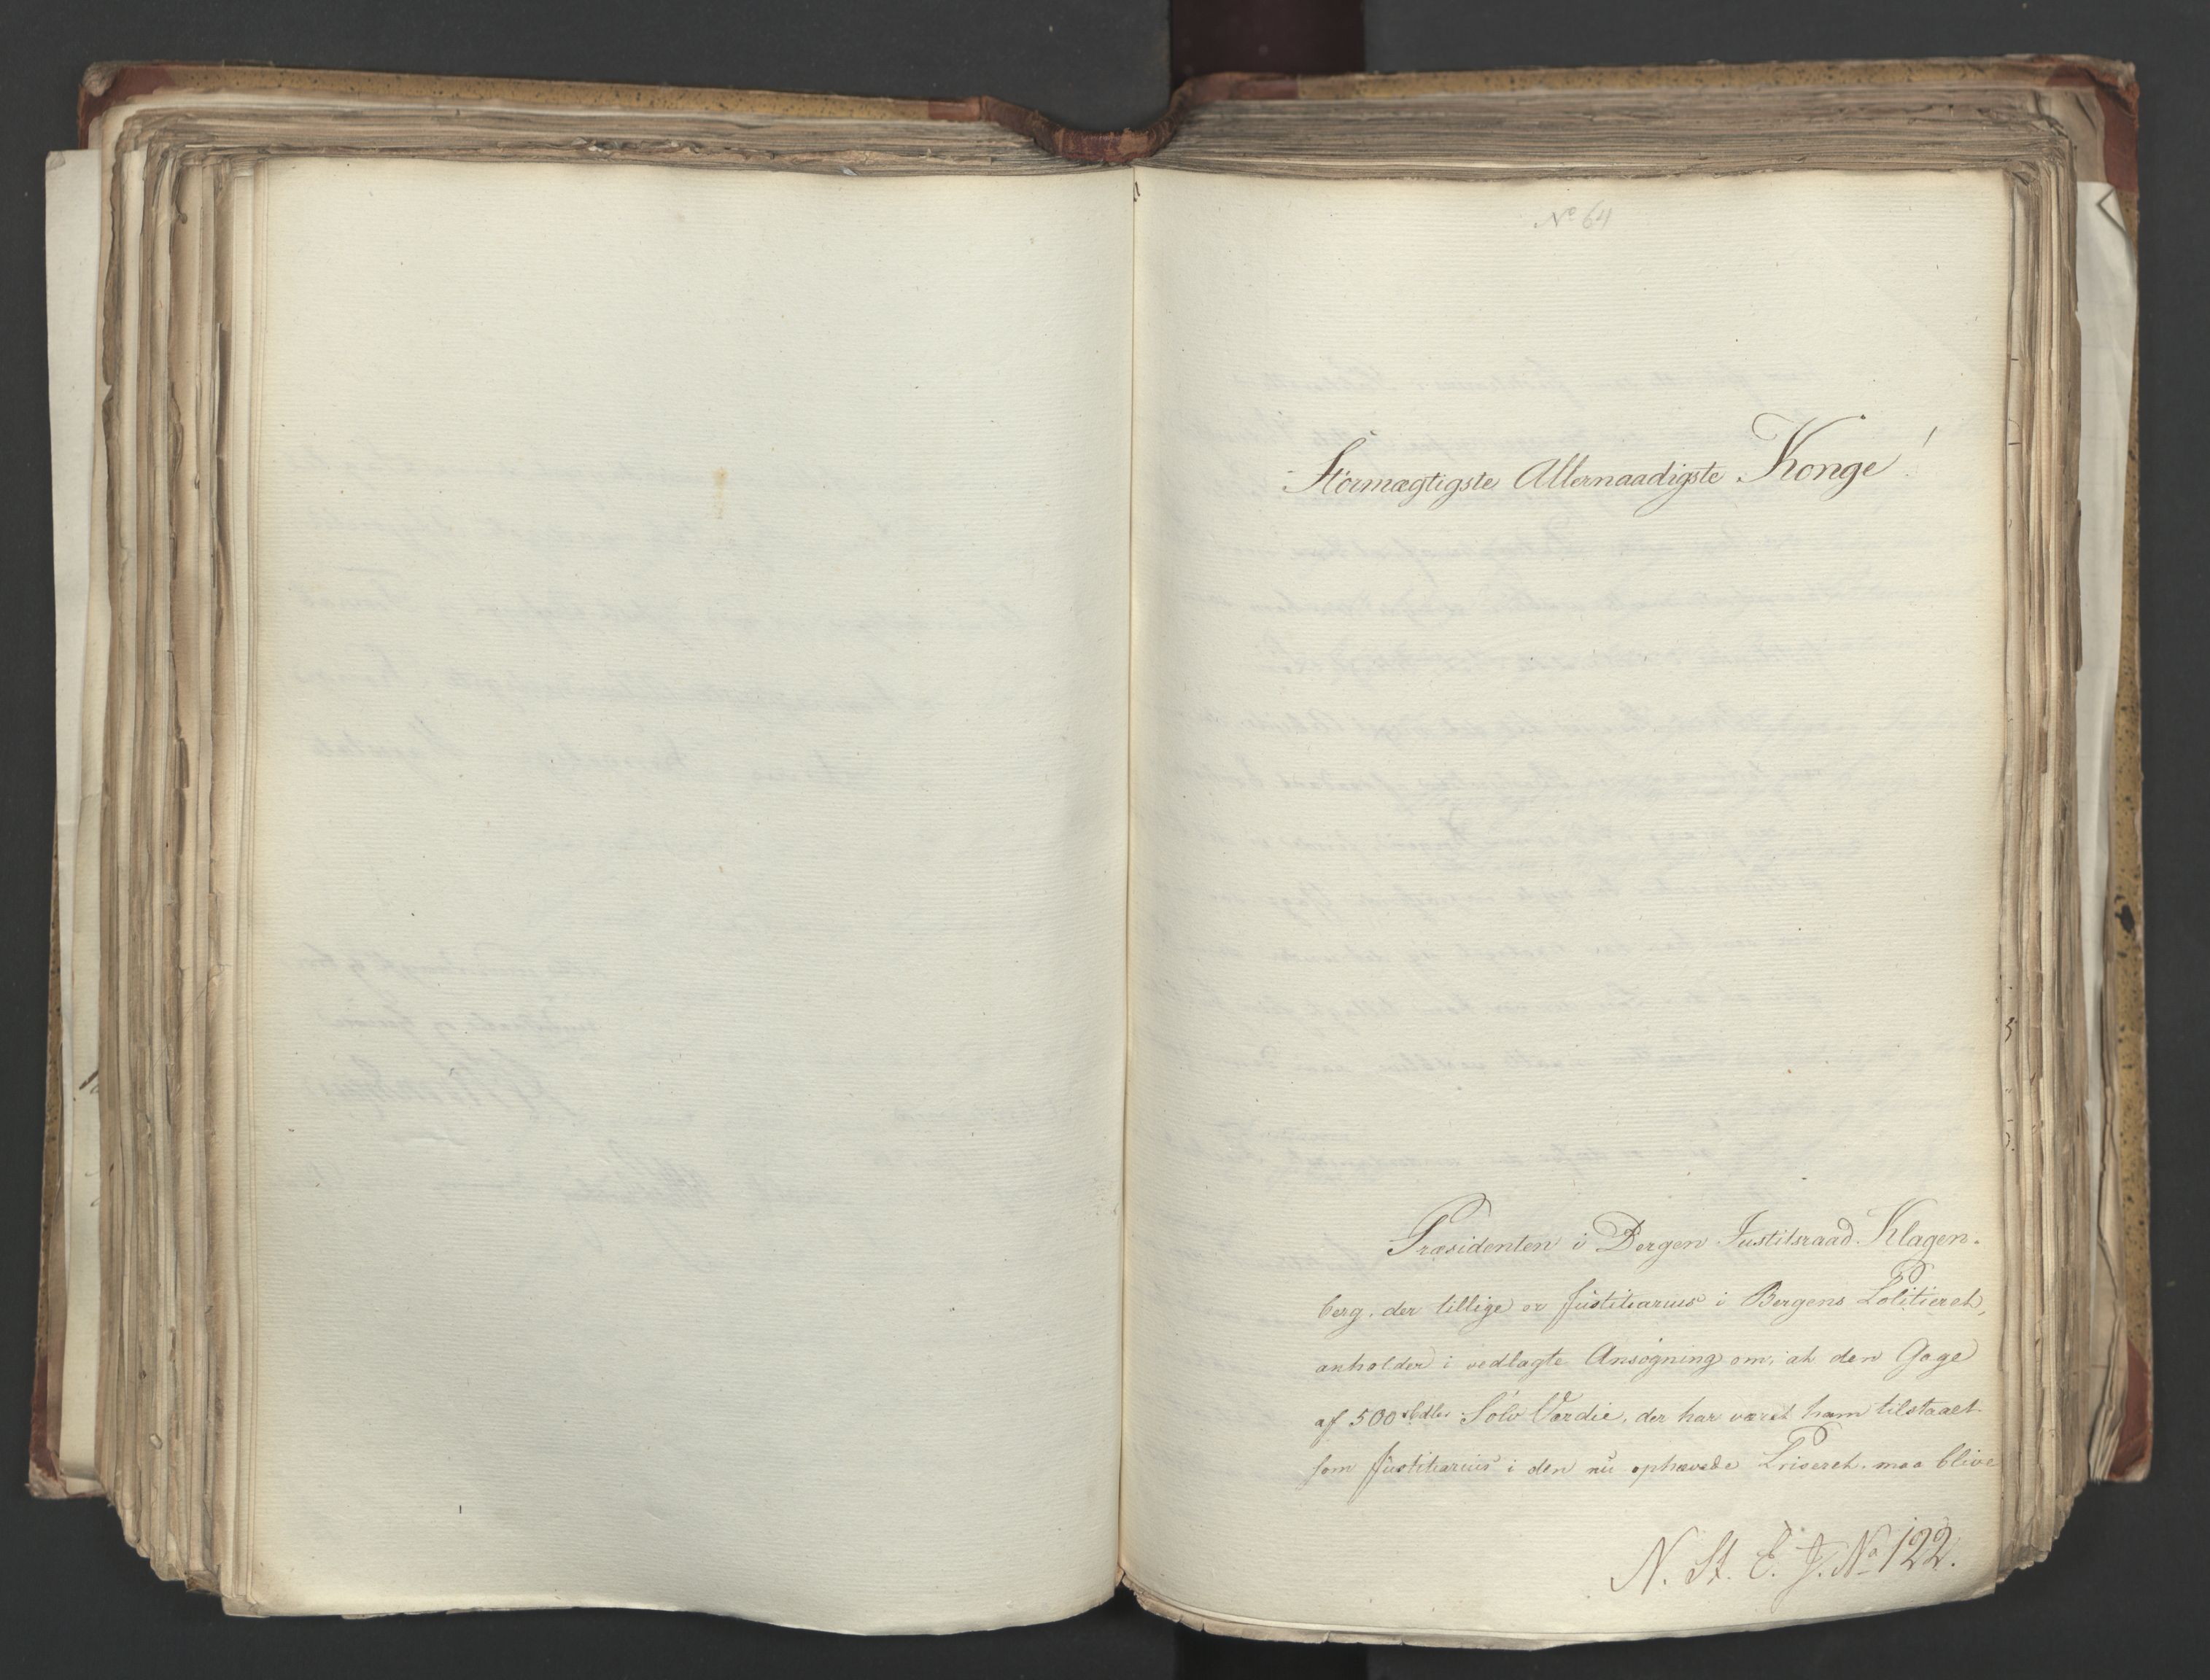 No 64
Stormægtigste Allernaadigste Konge!
Præsidenten i Bergen Justitsraad Klagen-
berg, der tillige er Justitiarius i Bergens Politieret,
anholder i vedlagte Ansøgning om, at den Gage
af 500 rbdler Sølv Værdie, der har været ham tilstaaet
som Justitiarius i den nu ophævede Priseret, maa blive
N. St. E. J. No 122.